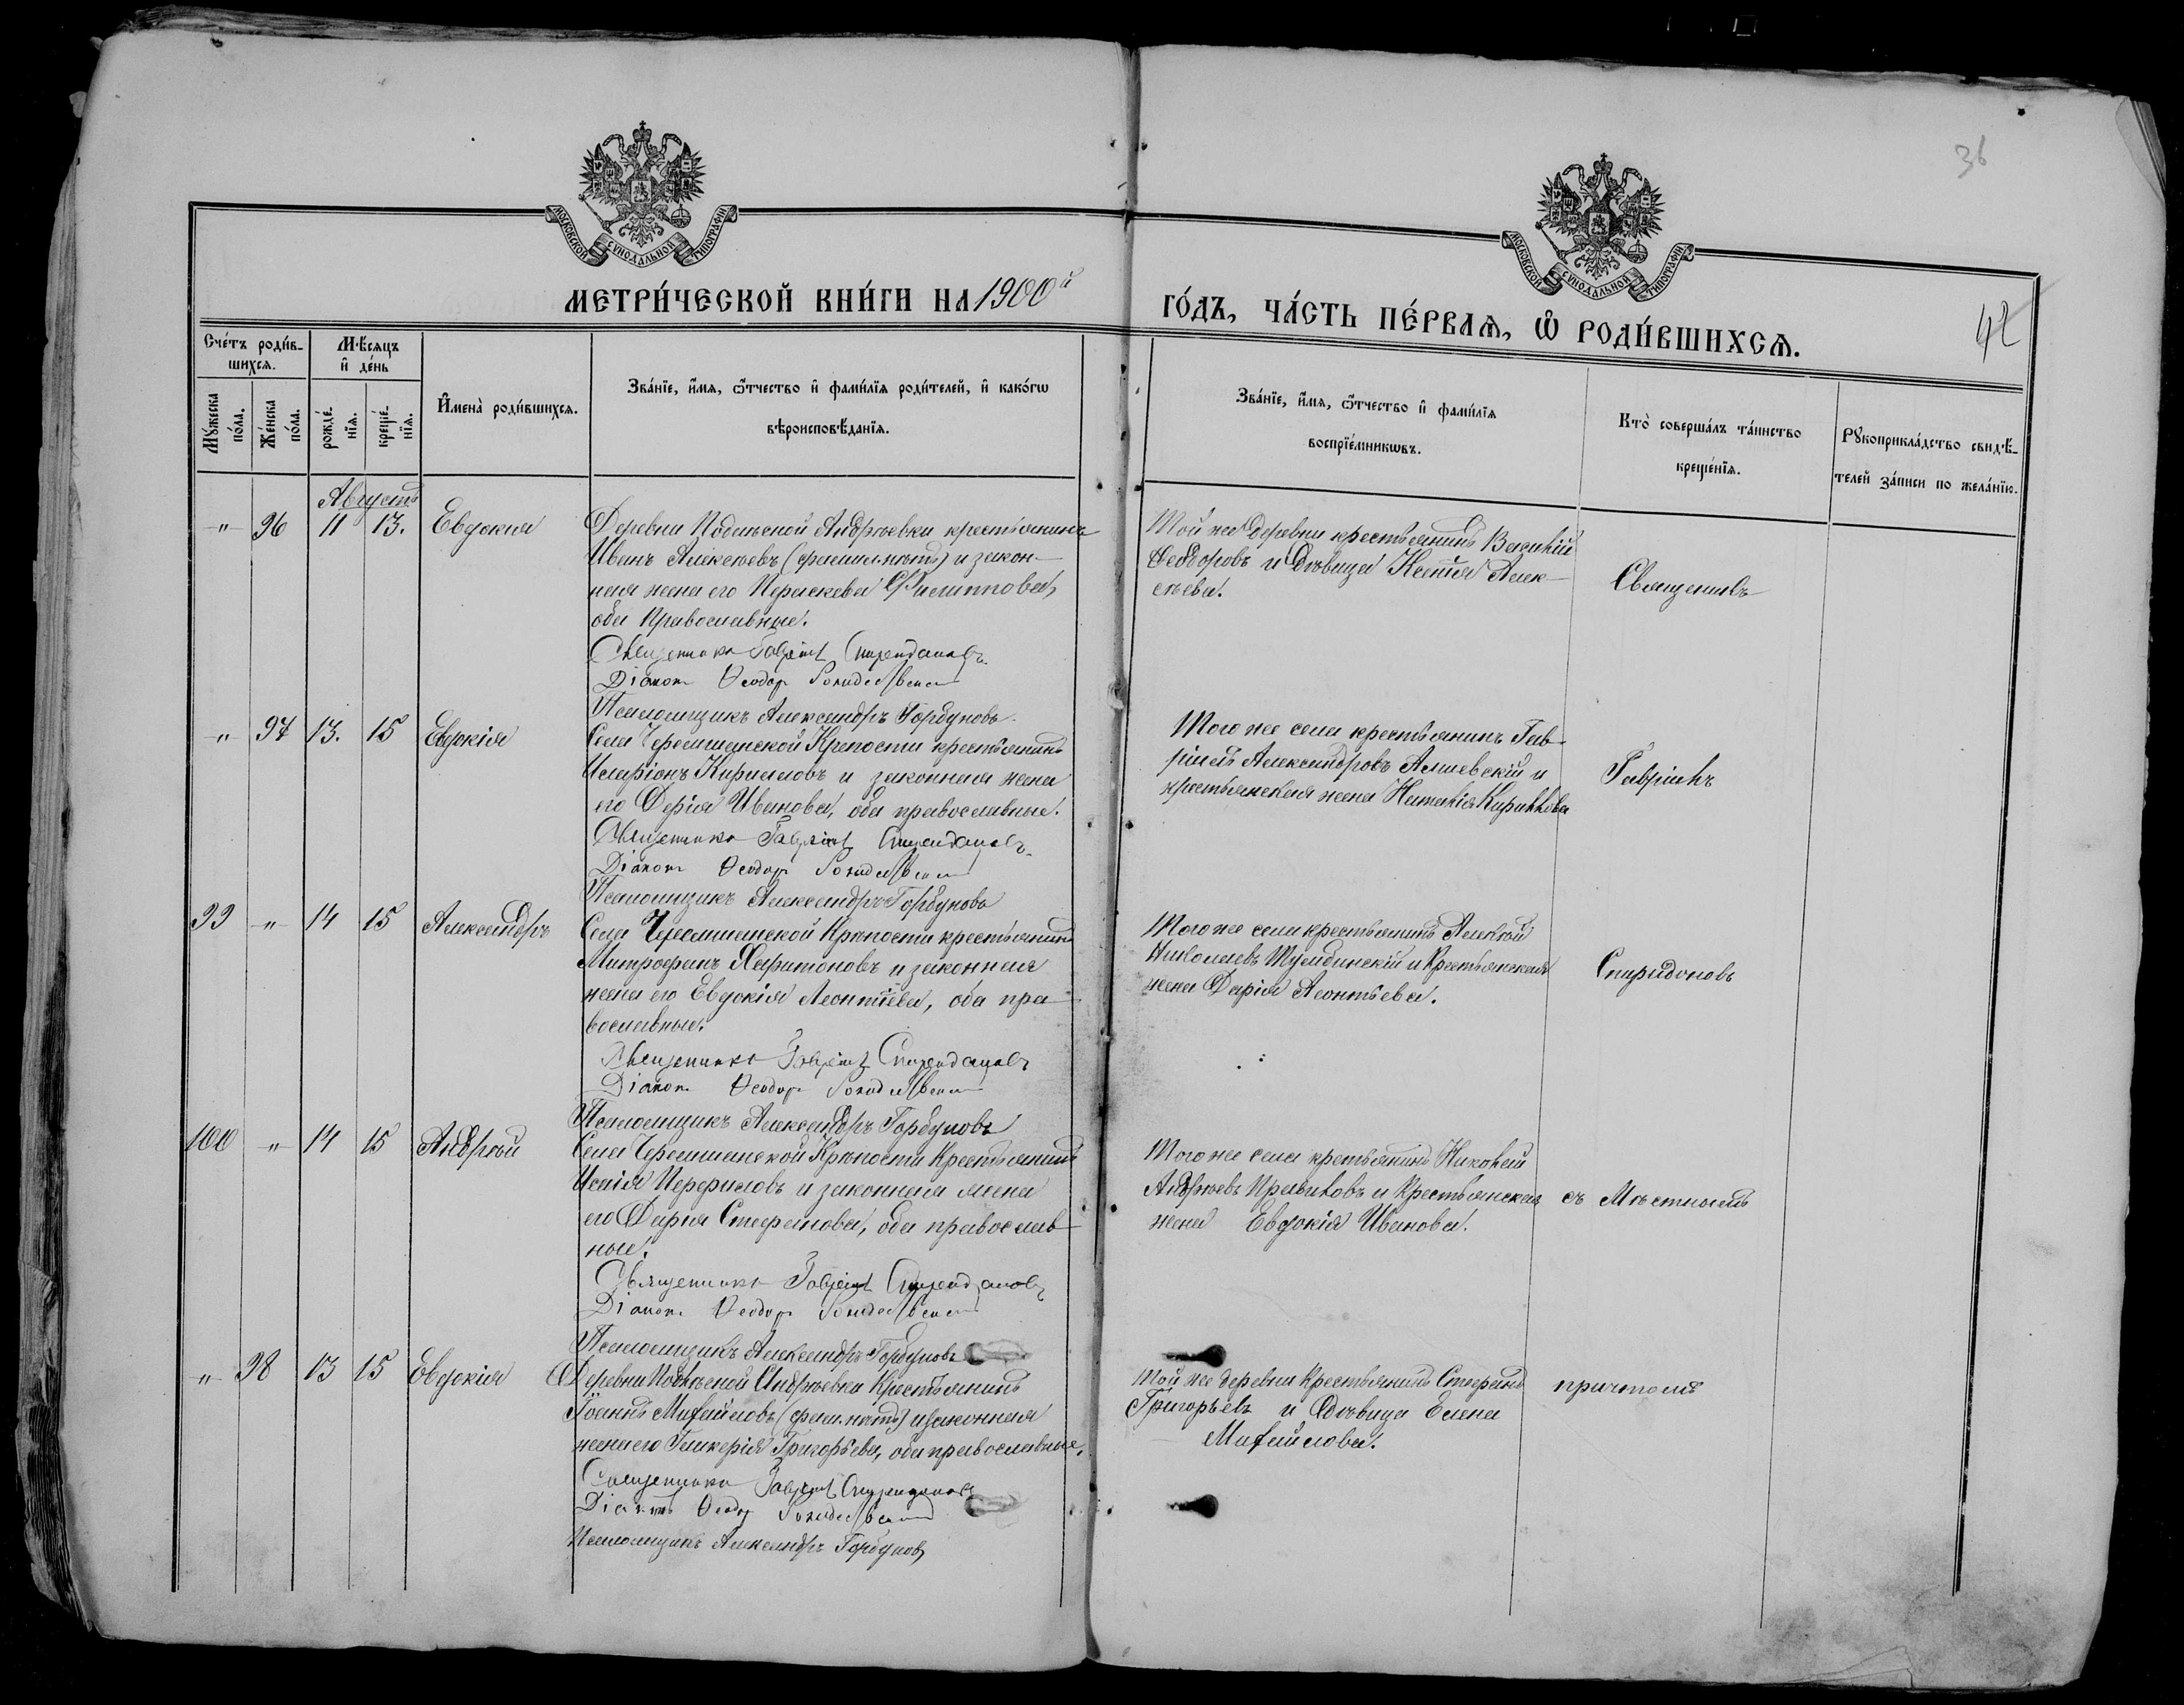 36
МОСКОВСКОЙ СѴНОДАЛЬНОЙ ТИПОГРАФІИ
МОСКОВСКОЙ СѴНОДАЛЬНОЙ ТИПОГРАФІИ
МЕТРИ́ЧЕСКОЙ КНИ́ГИ НА 1900й
ГО́ДЪ, ЧА́СТЬ ПЕ́РВАѦ, Ѽ РОДИ́ВШИХСѦ.
42
Сче́тъ роди́в-
шихсѧ.
Мѣ́сѧцъ
и҆ де́нь
Мꙋ́жеска по́ла.
Же́нска по́ла.
рожде́-
нїѧ.
креще́-
нїѧ.
И҆мена̀ роди́вшихсѧ.
Зва́нїе, и҆́мѧ, ѻ҆́тчество и҆ фами́лїѧ роди́телей, и҆ како́гѡ
вѣроисповѣ́данїѧ.
Зва́нїе, и҆́мѧ, ѻ҆́тчество и҆ фами́лїѧ
воспрїе́мникѡвъ.
Кто̀ соверша́лъ та́инство
креще́нїѧ.
Рꙋкоприкла́дство свидѣ́-
телей за́писи по жела́нїю.
Августъ
" 96 11 13. Евдокия
Деревни Подлѣсной Андреевки крестьянинъ
Иванъ Алексѣевъ (фамил. нѣтъ) и закон-
ная жена его Параскева Филиппова,
оба православные.
Священникъ Гавріилъ Спиридоновъ
Діаконъ Ѳеодоръ
Псаломщикъ Александръ Горбуновъ
Той же деревни крестьянинъ Василій
Ѳеодоровъ и дѣвица Ксенія Алек-
сѣева.
Священникъ
" 97 13. 15 Евдокія
Села Черемшанской Крѣпости крестьянинъ
Иларіонъ Кирилловъ и законная жена
его Дарія Иванова, оба православные.
Священникъ Гавріилъ Спиридоновъ
Діаконъ Ѳеодоръ
Псаломщикъ Александръ Горбуновъ
Того же села крестьянинъ Гав-
ріилъ Александровъ и
крестьянская жена Наталія Кириллова
Гавріилъ
99 " 14 15 Александръ
Села Черемшанской Крѣпости крестьянинъ
Митрофанъ Харитоновъ и законная
жена его Евдокія Леонтіева, оба пра-
вославные.
Священникъ Гавріилъ Спиридоновъ
Діаконъ Ѳеодоръ
Псаломщикъ Александръ Горбуновъ
Того же села крестьянинъ Алексѣй
Николаевъ и крестьянская
жена Дарія Леонтьева.
Спиридоновъ
100 " 14 15 Андрей
Села Черемшанской Крѣпости крестьянинъ
Исаія и законная жена
его Дарія Стефанова, оба православ-
ные.
Священникъ Гавріилъ Спиридоновъ
Діаконъ Ѳеодоръ
Псаломщикъ Александръ Горбуновъ
Того же села кретьянинъ Николай
Андреевъ и крестьянская
жена Евдокія Иванова.
съ мѣстнымъ
" 98 13 15 Евдокія
Деревни Подлѣсной Андреевки крестьянинъ
Іоаннъ Михайловъ (фам. нѣтъ) и законная
жена его Гликерія Григорьева, оба православные.
Священникъ Гавріилъ Спиридоновъ
Діаконъ Ѳеодоръ
Псаломщикъ Александръ Горбуновъ
Той же деревни крестьянинъ Стефанъ
Григорьевъ и дѣвица Елена
Михайлова.
причтомъ